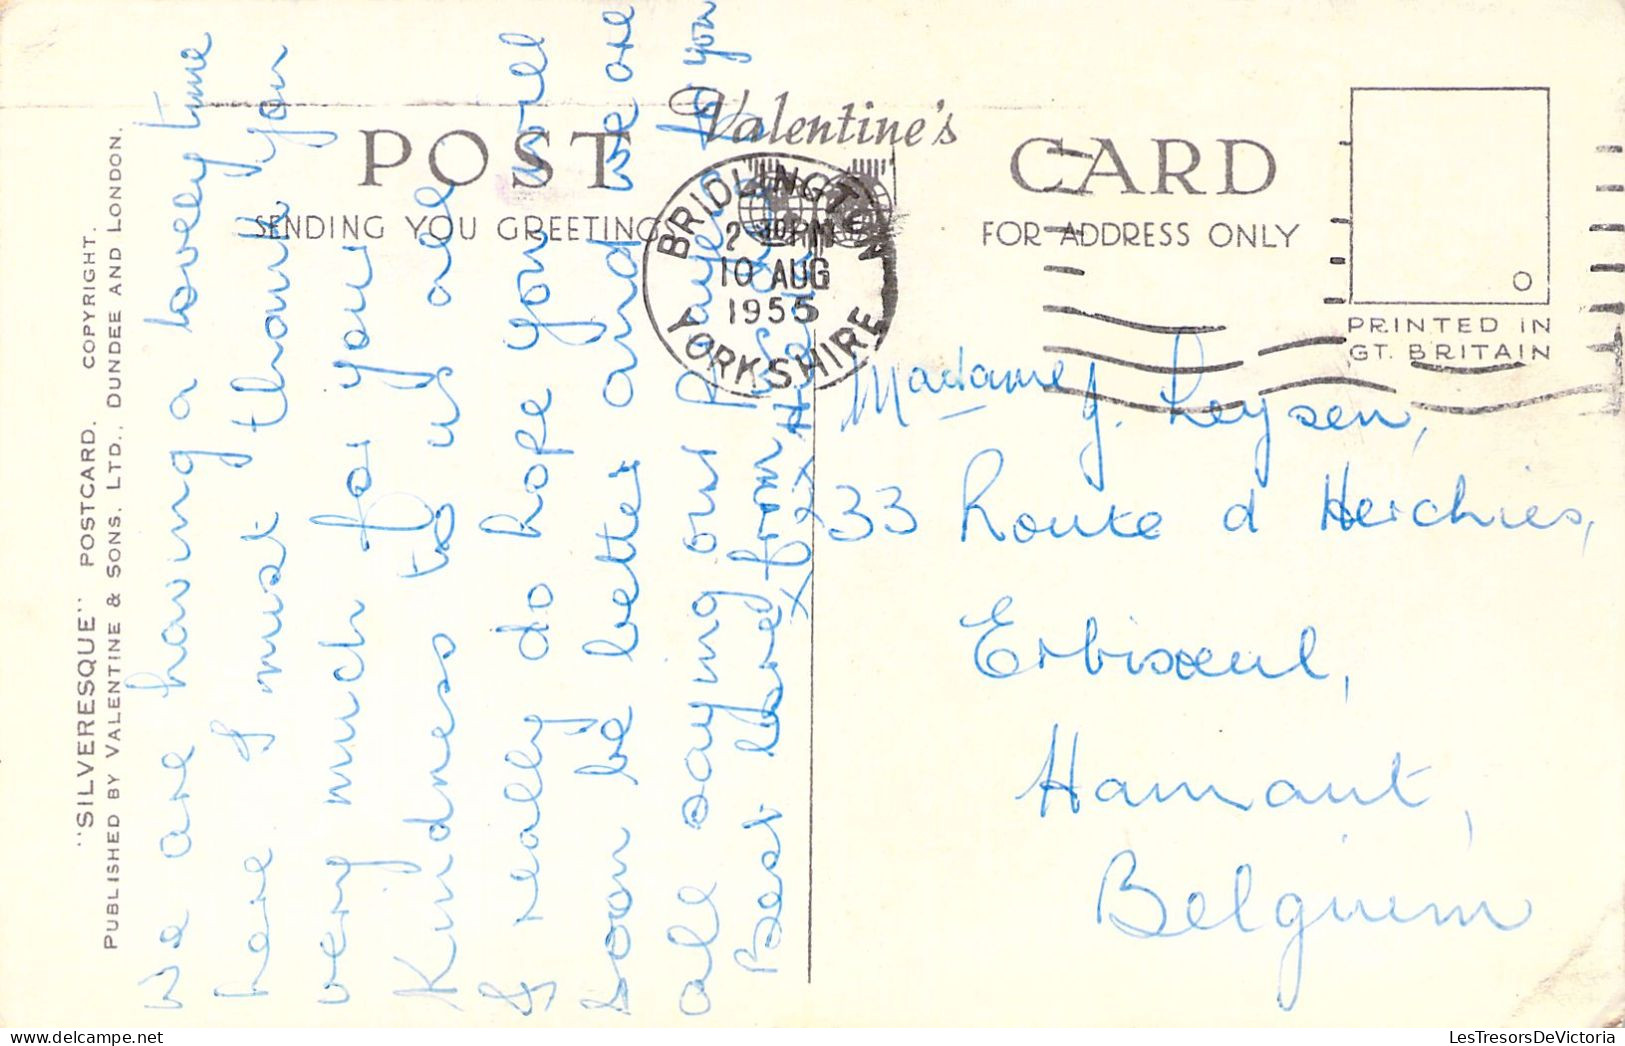 POST Valentine's CARD
SENDING YOU GREETING
FOR ADDRESS ONLY
PRINTED IN
GT. BRITAIN
BRIDLINGTON
2 30 PM
10 AUG
1955
YORKSHIRE
"SILVERESQUE" POSTCARD. COPYRIGHT.
PUBLISHED BY VALENTINE & SONS. LTD., DUNDEE AND LONDON.
We are having a lovely time
here I must thank you
very much for your
Kindness to us all
I really do hope you will
soon be better and we are
all saying our Prayers to you
Best love from
xxxx
Madame J. Leysen,
33 Route d Herchies,
Erbisœul,
Hainaut,
Belgium
LesTresorsDeVictoria.com